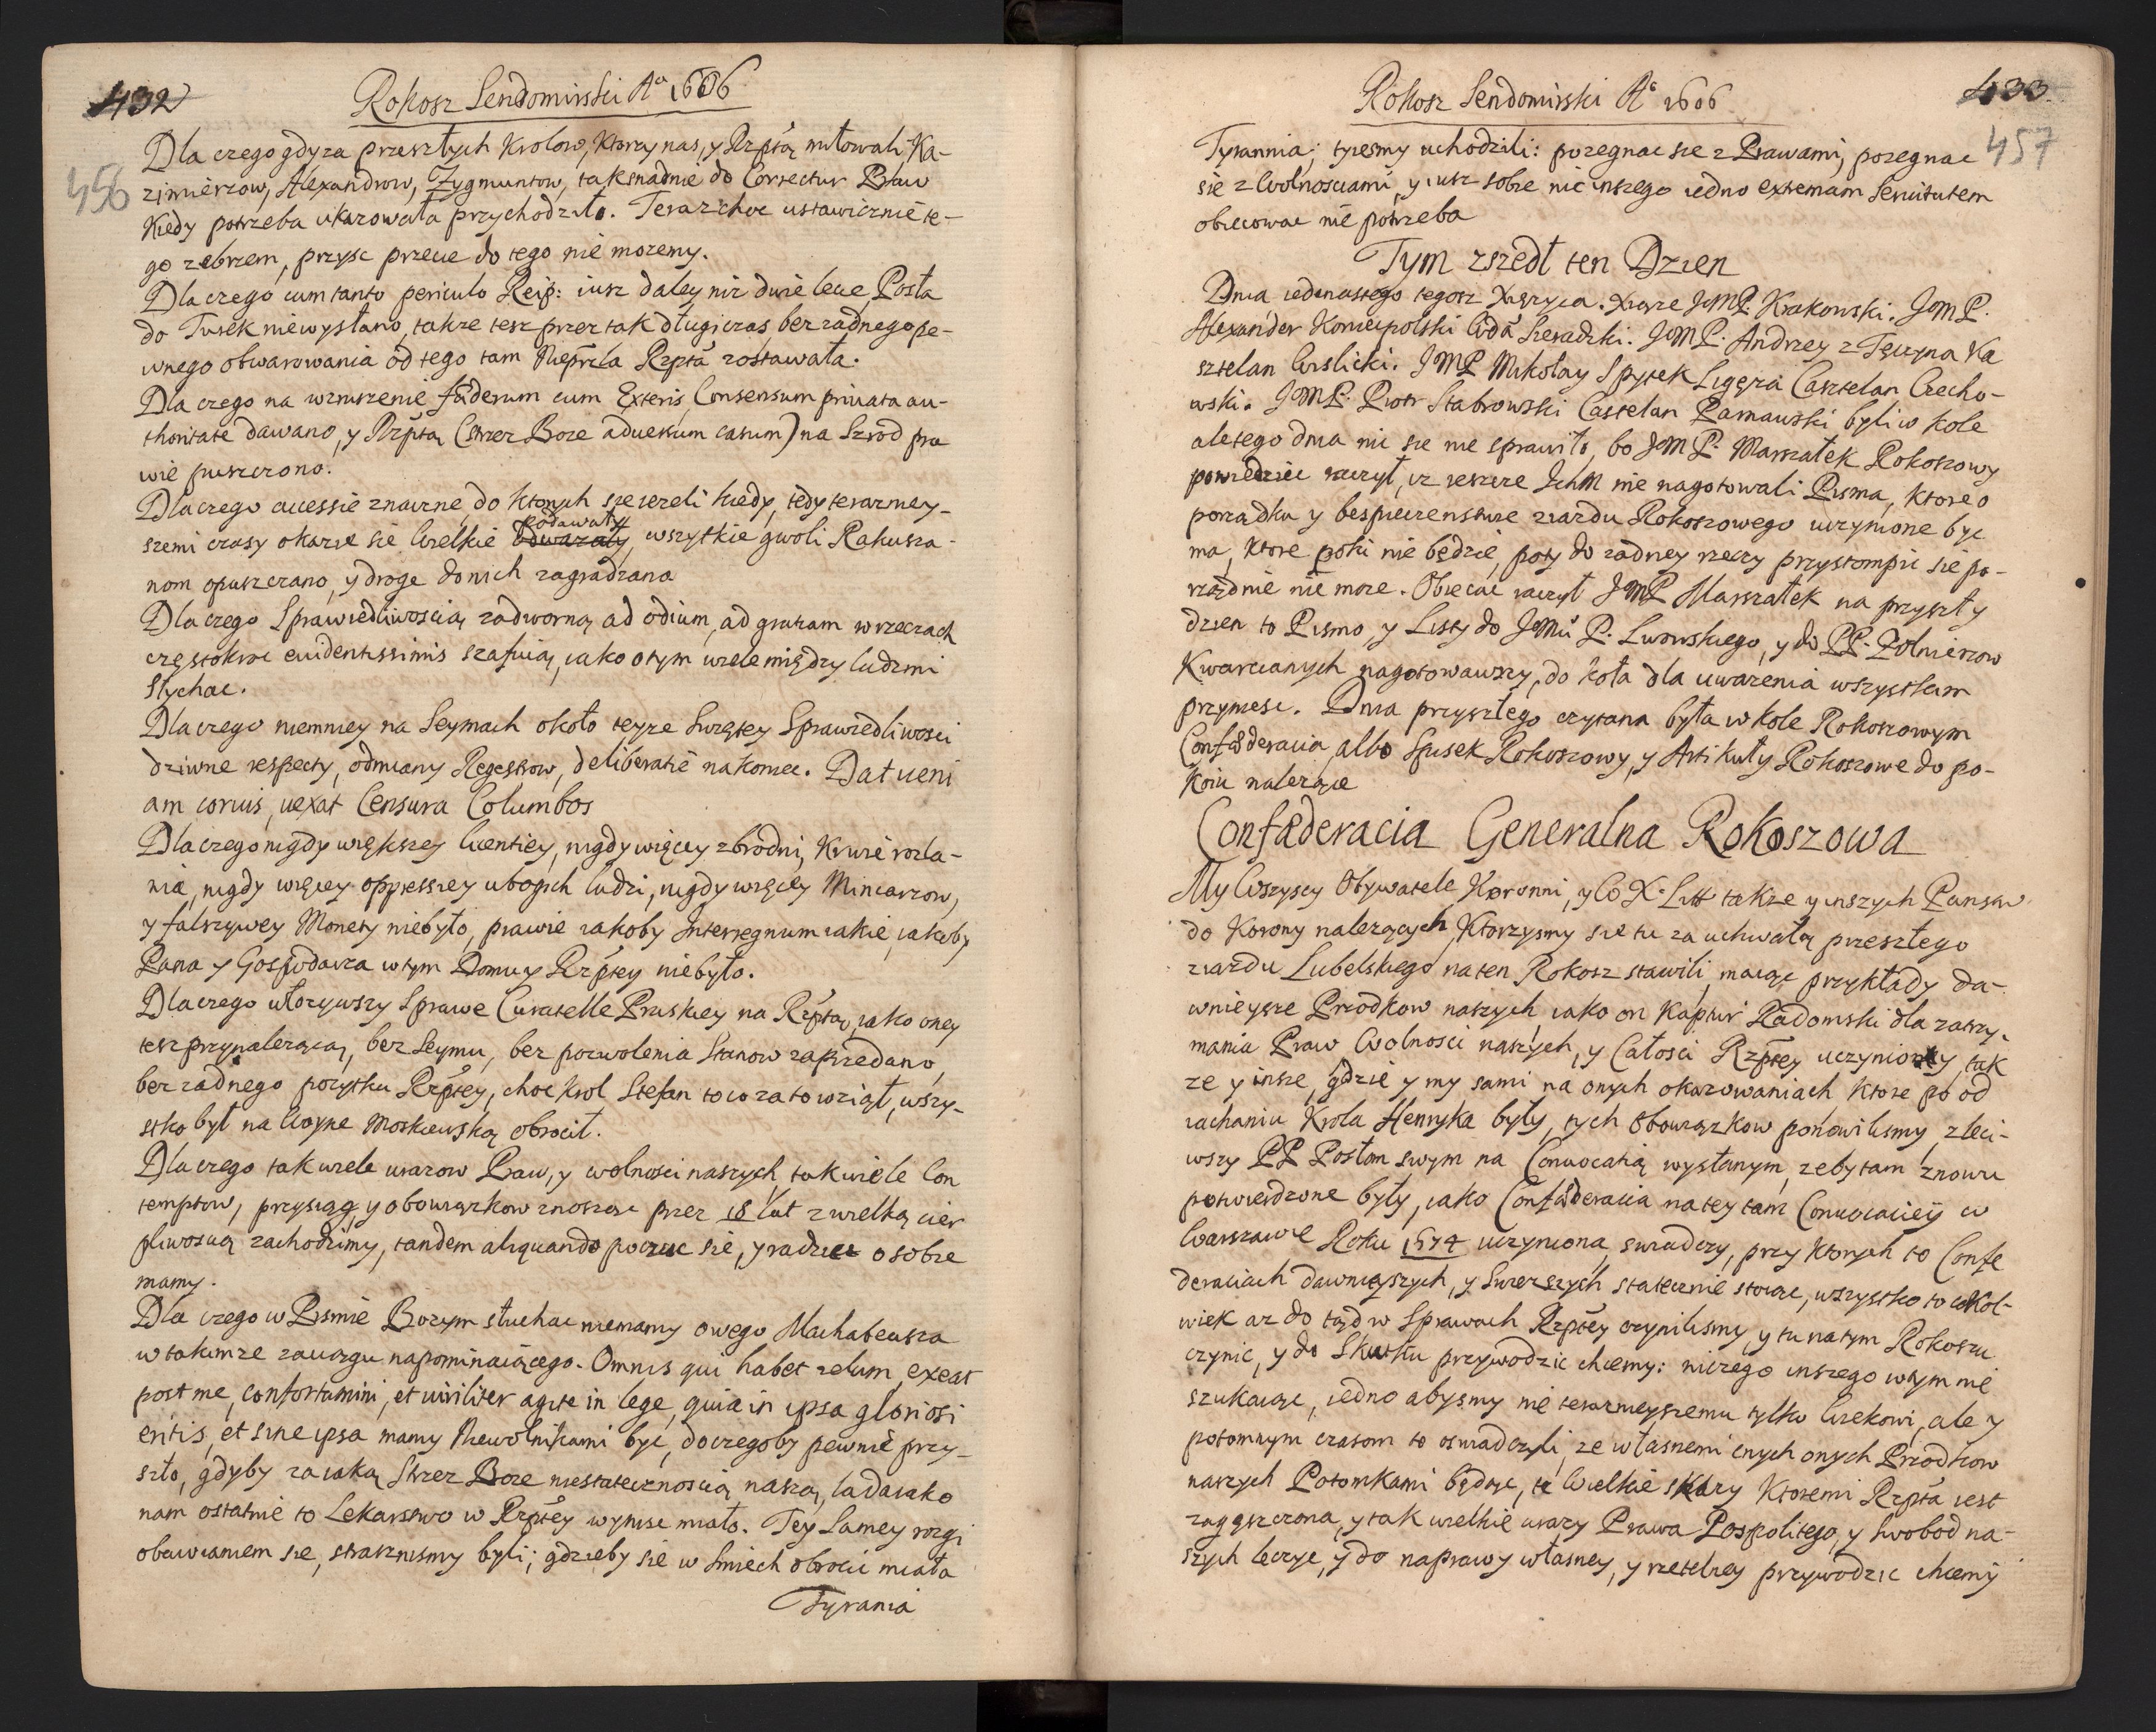 432
Rokosz Sendomirski Aº 1606
456
Dla czego gdy za przeszłych Krolow, Ktorzy nas, y Rzptą miłowali, Ka-
zimierzow, Alexandrow, Zygmuntow, tak snadnie do Correctur Praw
Kiedy potrzeba ukazowała przychodziło. Teraz choc ustawicznie te-
go zebrzem, przysc przecie do tego nie mozemy.
Dla czego cum tanto periculo Reip: iusz daley niz dwie lecie Posła
do Turek niewysłano, takze tesz przez tak długi czas bez zadnego pe-
wnego obwarowania od tego tam Nieprzla Rzptá zostawała.
Dla czego na wzruszenie fæderum cum Exteris, Consensum priuata au-
thoritate dawano, y Rzptą (strzez Boze aduersum casum) na Szrod pra
wie puszczono.
Dla czego accessie znaczne, do Ktorych sie iezeli kiedy, tedy terazniey-
szemi czasy okazie sie Wielkie podawały, wszytkie gwoli Rakusza-
nom opuszczano, y droge do nich zagradzano
Dla czego Sprawiedliwoscią zadworną ad odium, ad gratiam w rzeczach
częstokroc euidentissimis szafuią, iako o tym wiele między ludzmi
słychac.
Dla czego niemniey na Seymach około teyze Swiętey Sprawiedliwosci
dziwne respecty, odmiany Regestrow, deliberatie nakoniec. Dat ueni
am coruis, uexat Censura Columbos
Dla czego nigdy większey licentiey, nigdy więcey zbrodni, Krwie rozla-
nia, nigdy więcey oppressiey ubogich ludzi, nigdy więcey Mincarzow,
y falszywey Monety niebyło, prawie iakoby Interregnum iakie, iakoby
Pana y Gospodarza w tym Domu y Rzptey niebyło.
Dla czego utorzywszy Sprawe Curatelle Pruskiey na Rzptą, iako oney
tesz przynalezącą, bez Seymu, bez pozwolenia Stanow zaprzedano,
bez zadnego pozytku Rzptey, choc Krol Stefan to co za to wziął, wszy-
stko był na Woyne Moskiewską obrocił.
Dla czego tak wiele urazow Praw, y wolnosci naszych, tak wiele Con
temptow, przysiąg, y obowiązkow znosząc przez 18 lat z wielką cier
pliwoscią zachodzimy, tandem aliquando poczuc sie, y radzic o sobie
mamy.
Dla czego w Pismie Bozym słuchac niemamy owego Machabeusza
w takimze zaciągu napominaiącego. Omnis qui habet zelum, exeat
post me, confortamini, et uiriliter agite in lege, quia in ipsa gloriosi
eritis, et sine ipsa mamy Niewolnikami byc, do czegoby pewnie przy-
szło, gdyby za iaką Strzez Boze niestatecznoscią naszą, ladaiako
nam ostatnie to Lekarstwo w Rzptey wynisc miało. Tey Samey rozgi
obawianiem sie, strasznismy byli; gdzieby sie w smiech obrocic miała
Tyrania
Rokosz Sendomirski Aº 1606
433
457
Tyrannia; tysesmy uchodzili: pozegnac sie z Prawami, pozegnac
sie z Wolnosciami, y iusz sobie nic inszego iedno extremam Seruitutem
obiecowac nie potrzeba
Tym zszedł ten Dzien
Dnia iedenastego tegosz Xięzyca. Xiąze JeMP. Krakowski. JeM P.
Alexander Koniecpolski Wodá Sieradzki. JeM P. Andrzey z Tęczyna Ka
sztelan Wislicki. JeMP Mikołay Spytek Ligęza Casztelan Czecho-
wski. JeMP. Piotr Stabrowski Castelan Parnawski byli w Kole
ale tego dnia nic sie nie sprawiło, bo JeM P. Marszałek Rokoszowy
powiedziec raczył, iz ieszcze IchM nie nagotowali Pisma, ktore o
porządku y bespieczenstwie ziazdu Rokoszowego uczynione byc
ma, Ktore poki nie będzie, poty do zadney rzeczy przystompic sie po-
rządnie nie moze. Obiecac raczył JeMP Marszałek na przyszły
dzien to Pismo, y Listy do JeMci P. Lwowskiego, y do PP. Zołnierzow
Kwarcianych nagotowawszy, do koła dla uwazenia wszystkim
przyniesc. Dnia przyszłego czytana była w kole Rokoszowym
Confæderacia, albo Spisek Rokoszowy, y Artikuły Rokoszowe do po-
koiu nalezące
Confæderacia Generalna Rokoszowa
My Wszyscy Obywatele Koronni, y Wo X. Litt takze y inszych Panstw
do Korony nalezących, Ktorzysmy sie tu za uchwałą przeszłego
ziazdu Lubelskiego na ten Rokosz stawili, maiąc przykłady da-
wnieysze Przodkow naszych, iako on Kaptur Radomski dla zatrzy-
mania Praw Wolnosci naszych, y Całosci Rzptey uczyniony, tak
ze y insze, gdzie y my sami na onych okazowaniach Ktore po od
iachaniu Krola Henryka były, tych Obowiązkow ponowilismy, zleci-
wszy PP Posłom swym na Conuocatią wysłanym, zeby tam znowu
potwierdzone były, iako Confæderacia na tey tam Conuocaciey w
Warszawie Roku 1574 uczyniona, swiadczy, przy Ktorych to Confe
deraciach dawnieyszych, y Swiezszych statecznie stoiąc, wszystko to cokol-
wiek az do tąd w Sprawach Rzptey czynilismy, y tu na tym Rokoszu
czynic, y do Skutku przywodzic chcemy: niczego inszego w tym nie
szukaiąc, iedno abysmy nie terazniejszemu tylko Wiekowi, ale y
potomnym czasom to oswiadczyli, ze własnemi cnych onych Przodkow
naszych Potomkami będąc, te Wielkie skazy Ktoremi Rzptá iest
zagęszczona, y tak wielkie urazy Prawa Pospolitego, y Swobod na-
szych leczyc, y do naprawy własney, y rzetelney przywodzic chcemy